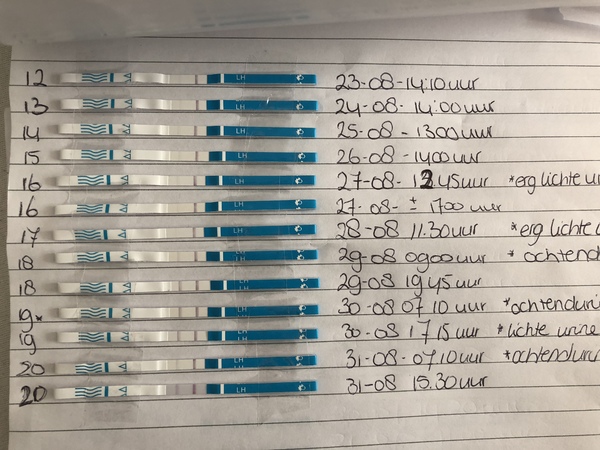 12 LH 23-08-14:10 uur
13 LH 24-08-14:00 uur
14 LH 25-08 - 1300 uur
15 LH 26-08 - 1400 uur
16 LH 27-08- 1345 uur *erg lichte
16 LH 27-08- ± 1700 uur
17 LH 28-08 11.30 uur *erg lichte
18 LH 29-08 0900 uur * ochtend
18 LH 29-08 1945 uur
19* LH 30-08 07 10 uur *ochtenduri
19 LH 30-08 1715 uur *lichte urine
20 LH 31-08-0710 uur *ochtenduri
20 LH 31-08 15.30 uur